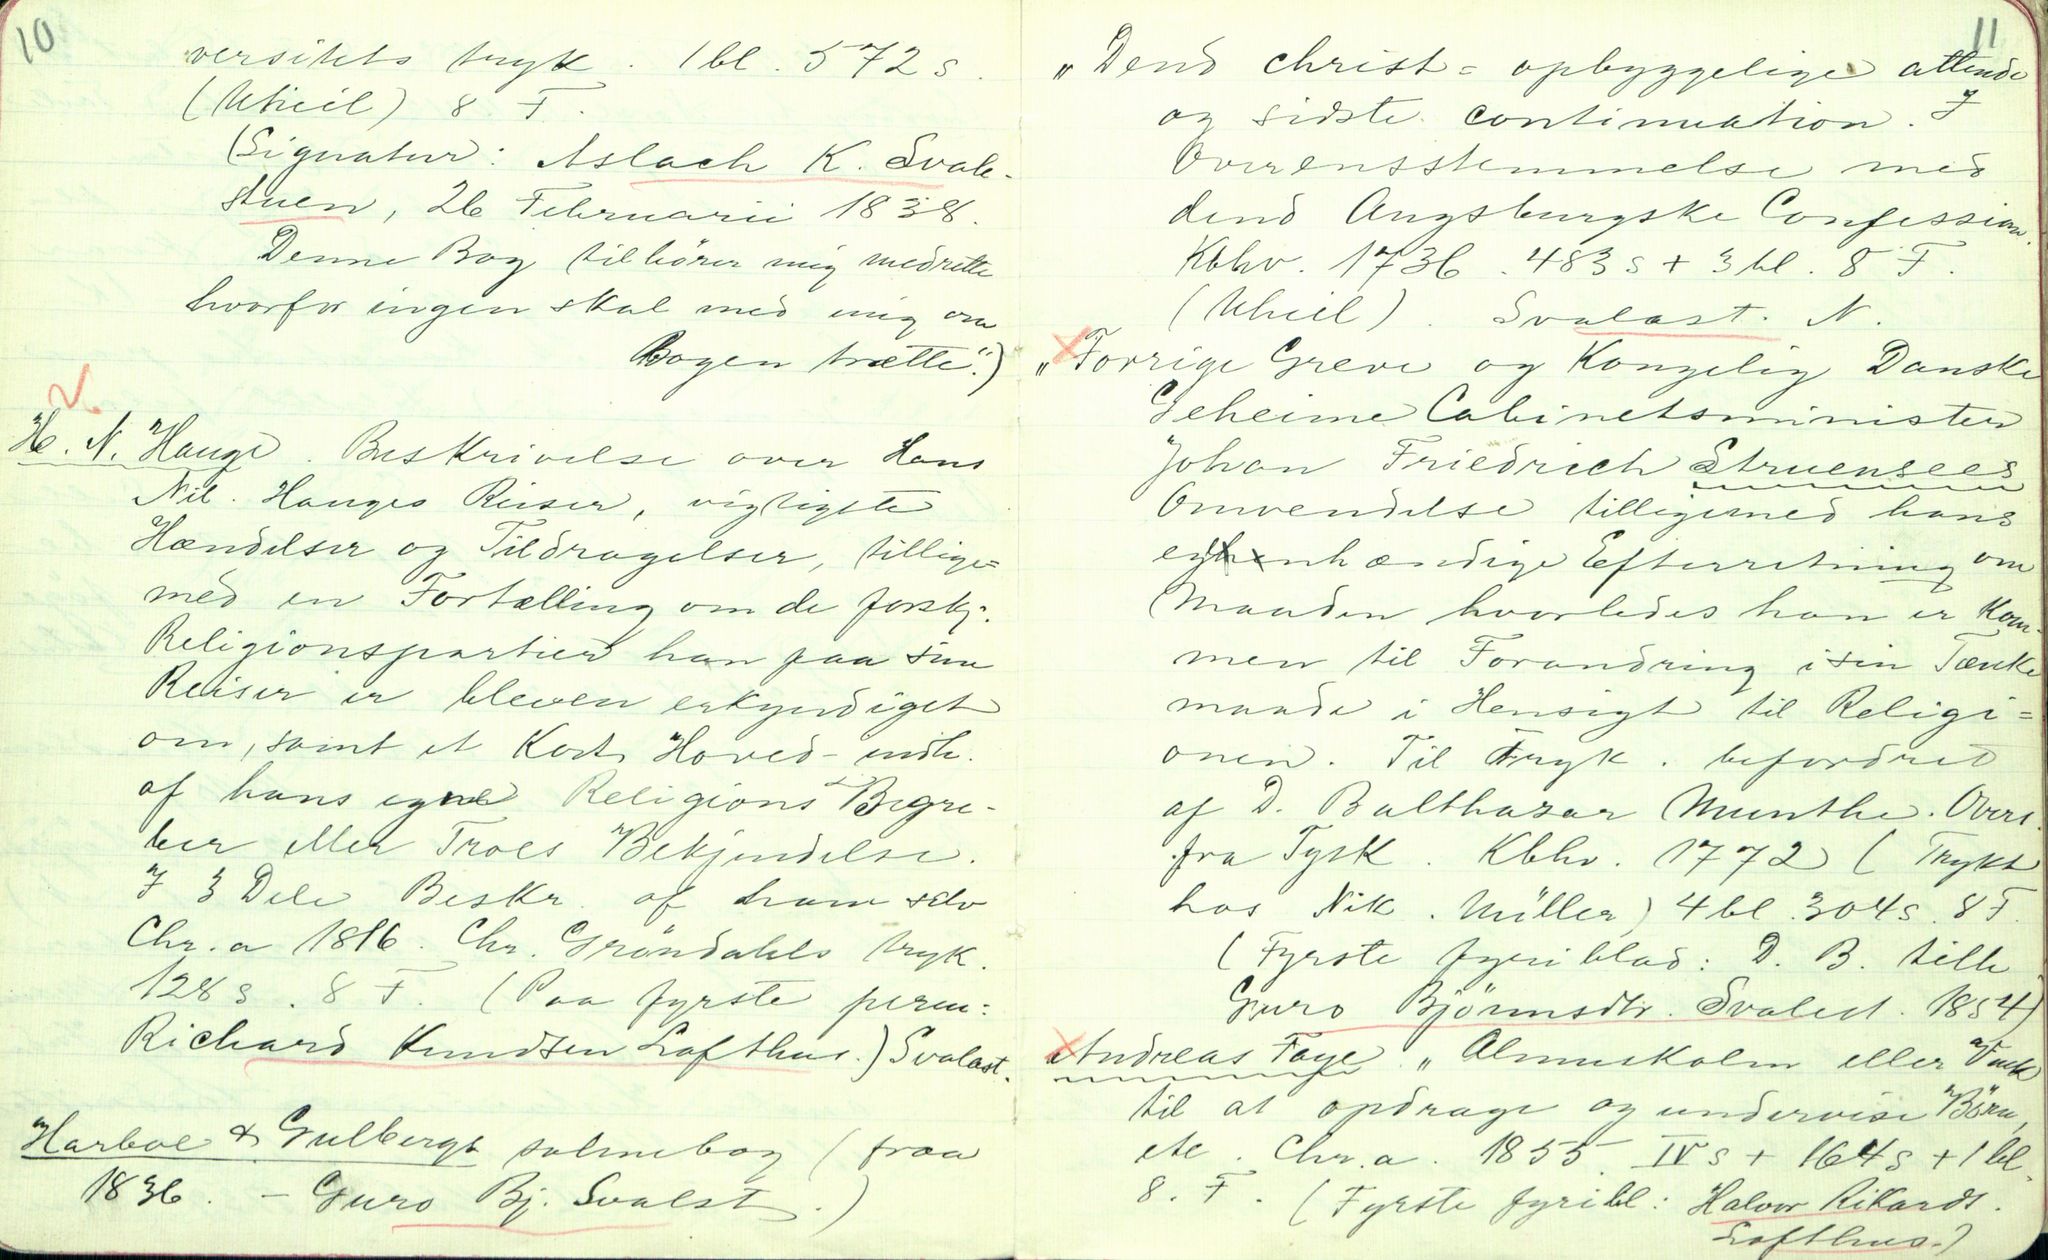 10
versitets tryk. 1 bl. 572 s.
(Uheil) 8. F.
(Signatur: Aslach K. Svale-
stuen, 26 Februarii 1838.
Denne Bog tilhörer mig medrette
hvorfor ingen skal med mig om
Bogen trætte".)
H. N. Hauge. Beskrivelse over Hans
Nil. Hauges Reiser, vigtigste
Hændelser og Tildragelser, tillige=
med en Fortælling om de forskj.
Religionspartier han paa sine
Reiser er bleven erkyndiget
om, samt et Kort Hoved-indh.
af hans egne Religions Begre-
ber eller Troes Bekjendelse.
I 3 Dele Beskr. af ham selv
Chr.a 1816. Chr. Gröndahls tryk.
128 s. 8 F. (Paa fyrste perm:
Richard Knudsen Lofthus.) Svalast.
Harboe & Gulbergs salmebog (fraa
1836. - Guro Bj. Svalst.)
11
"Dend christ= opbyggelige attende
og sidste continuation. I
Overensstemmelse med
dend Augsburgske Confession.
Kbhv. 1736. 483 s + 3 bl. 8 F.
(Uheil). Svalast. N.
"Forrige Greve og Kongelig Danske
Geheime Cabinetsminister
Johan Friedrich Struensees
Omvendelse tilligemed hans
egenhændige Efterretning om
Maaden hvorledes han er Kom-
men til Forandring i sin Tænke
maade i Hensigt til Religi=
onen. Til Tryk. befordret
af D. Balthasar Munthe. Overs.
fra Tysk. Kbhv. 1772 (Trykt
hos Nik. Müller) 4 bl. 304 s. 8 F.
(Fyrste fyriblad: D. B. tilh
Guro Björnsdtr. Svalest. 1854)
Andreas Faye. "Almuskolen eller Vink
til at opdrage og undervise Börn,
etc. Chr.a. 1855. IV s + 164 s + 1 bl.
8. F. (Fyrste fyribl: Halvor Rikards.
Lofthus.)